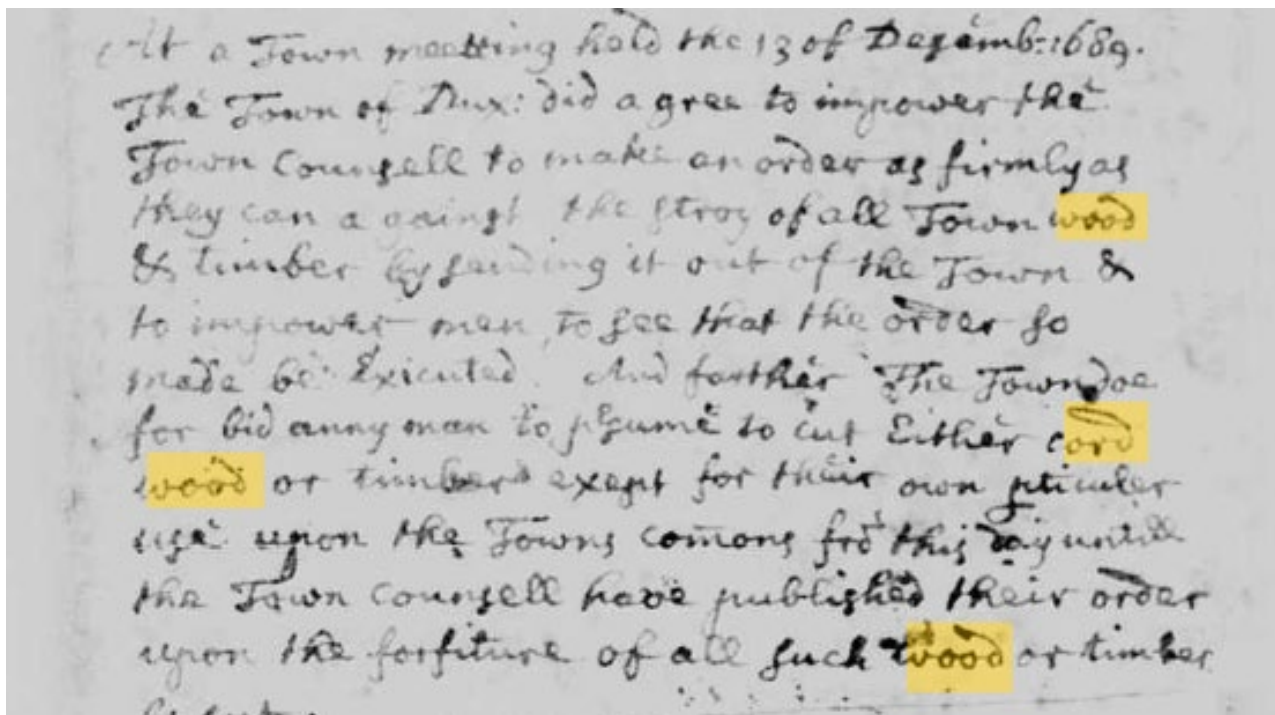 At a Town meetting held the 13 of Decemb: 1689.
The Town of Dux: did a gree to impower the
Town Counsell to make an order as firmly as
they can a gainst the stroy of all Town wood
& timber by sending it out of the Town &
to impower men to see that the order so
made be Exicuted. And farther The Town doe
for bid anny man to psume to cut Either cord
wood or timber exept for their own pticuler
use upon the Towns comons frō this day untill
the Town Counsell have published their order
upon the forfiture of all such wood or timber